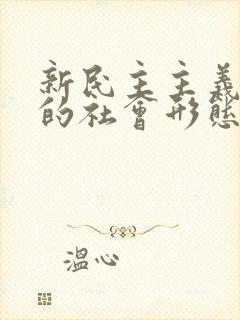 新民主主義
的社會形態
溫心